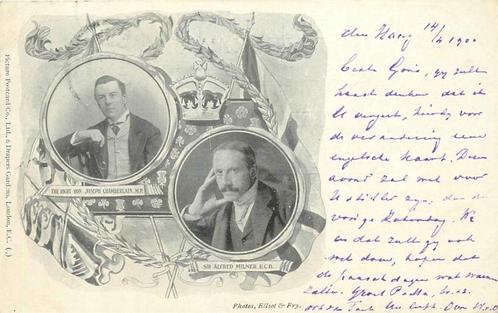 Picture Postcard Co., Ltd., 6 Drapers Gardens, London, E.C. (1)
THE RIGHT HON. JOSEPH CHAMBERLAIN, M.P.
SIR ALFRED MILNER, K.C.B.
Photos, Elliot & Fry.
den Haag 14/4 1900
Beste Gois, gy zult
haast denken dat ik
U vergeet, hierby voor
de verandering een
engelsche kaart. Deze
avond zal wel voor
U stiller zyn, dan de
vorige Zaturdag. We
dat zult gy ook
wel doen, hopen dat
de paaschdagen wat
zullen. Groet Padta,
Tante